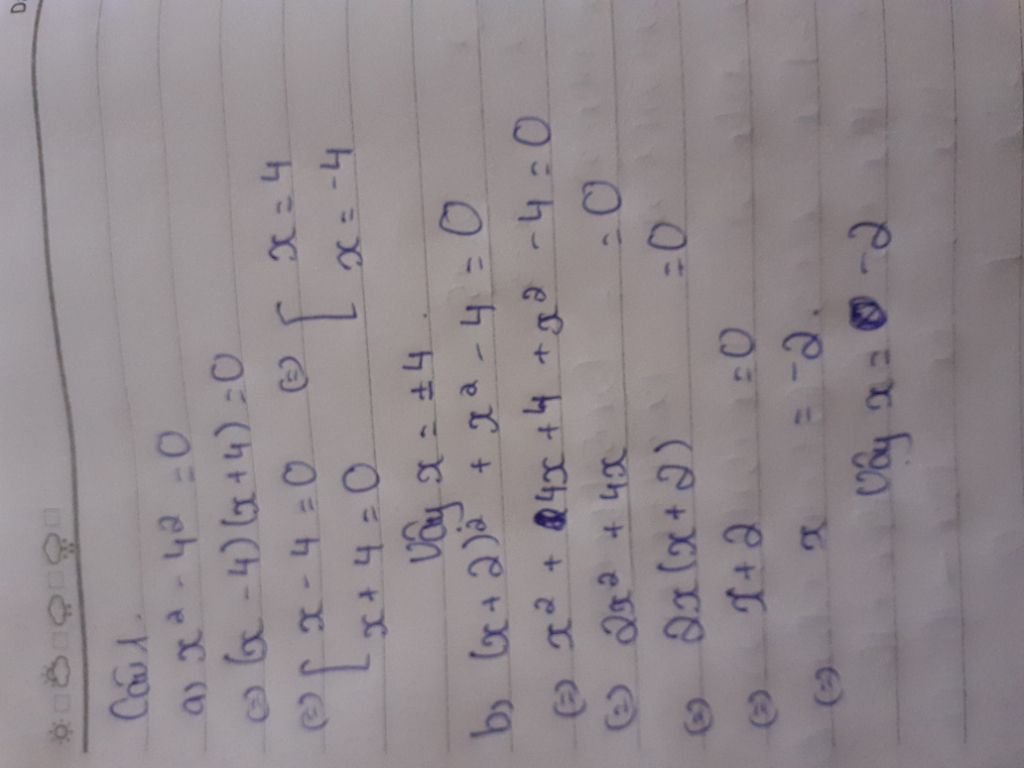 Câu 1.
a) x² - 4² = 0
(=) (x - 4)(x + 4) = 0
(=) [ x - 4 = 0 (=) [ x = 4
x + 4 = 0 x = -4
Vậy x = ±4.
b) (x + 2)² + x² - 4 = 0
(=) x² + 4x + 4 + x² - 4 = 0
(=) 2x² + 4x = 0
(=) 2x(x + 2) = 0
(=) x + 2 = 0
(=) x = -2.
Vậy x = -2